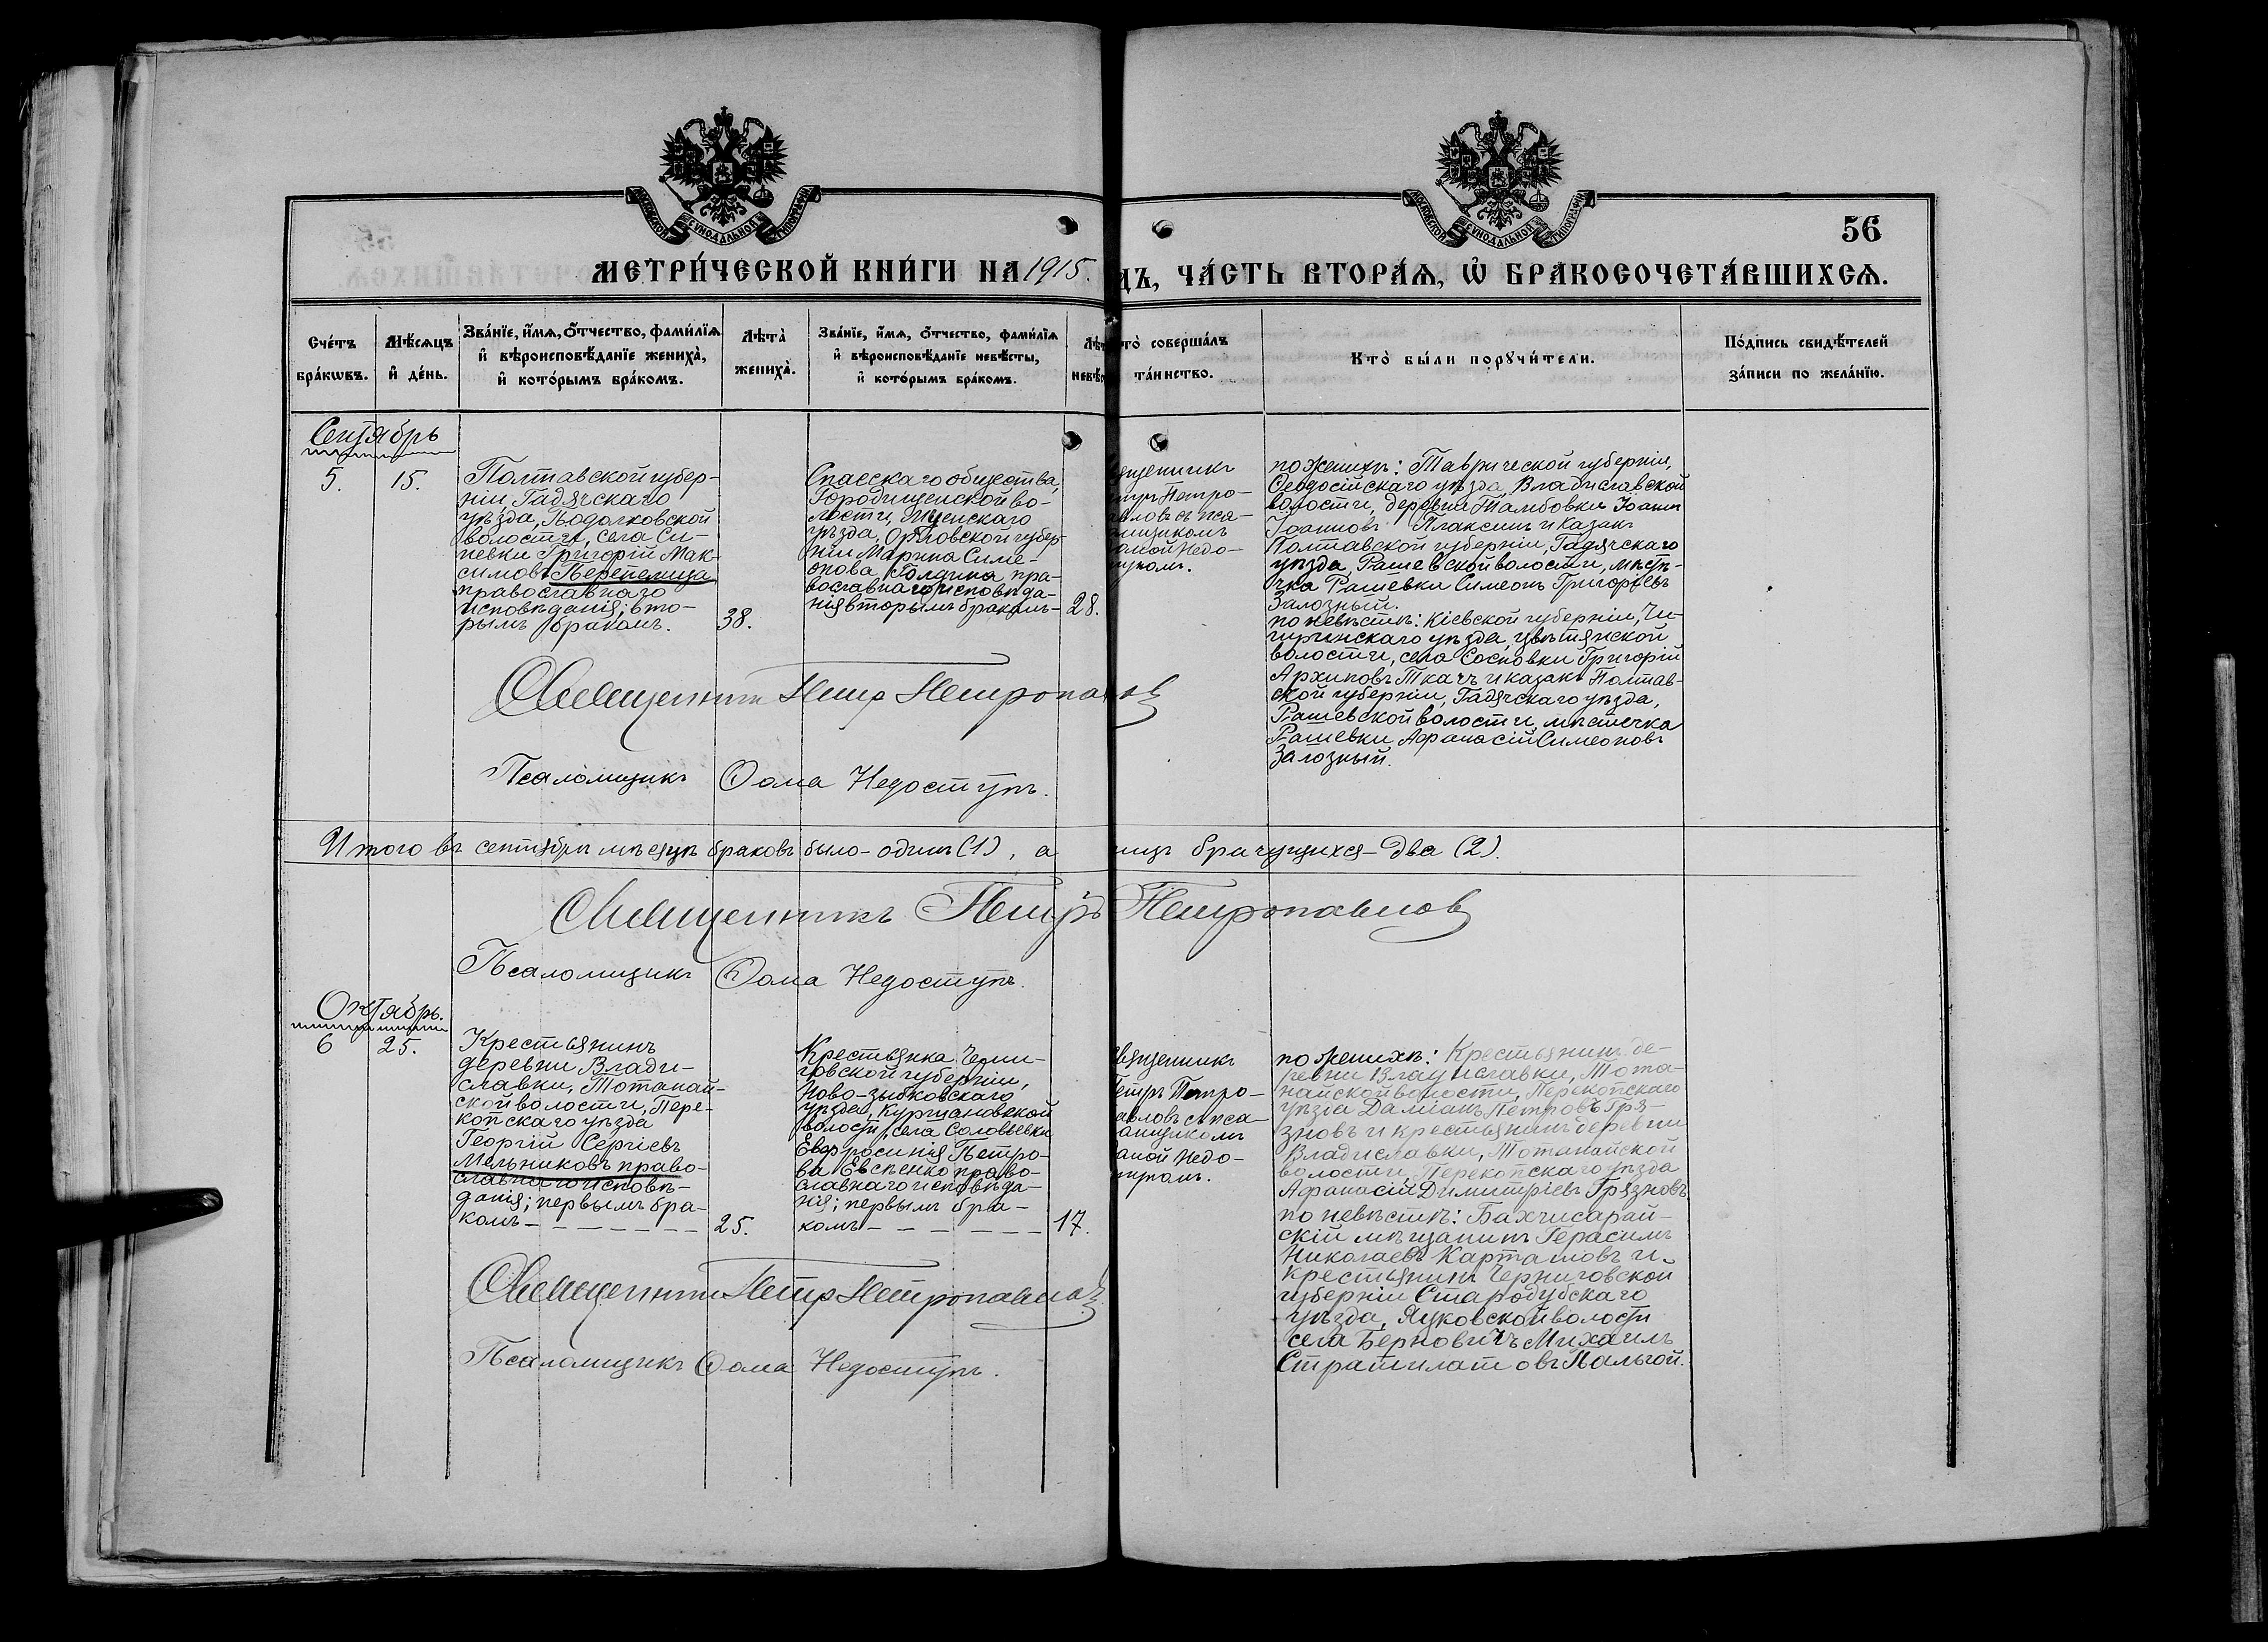 МОСКОВСКОЙ СУНОДАЛЬНОЙ ТИПОГРАФІИ
МОСКОВСКОЙ СУНОДАЛЬНОЙ ТИПОГРАФІИ
56
МЕТРИ́ЧЕСКОЙ КНИ́ГИ НА 1915.
ДЪ, ЧА́СТЬ ВТОРА́Ѧ, Ѡ҆ БРАКОСОЧЕТА́ВШИХСѦ.
Сче́тъ бра́кѡвъ.
Мѣ́сѧцъ и҆ де́нь.
Зва́нїе, и҆́мѧ, ѻ҆́тчество, фами́лїѧ
и҆ вѣроисповѣ́данїе жениха̀,
и҆ кото́рымъ бра́комъ.
Лѣта̀ жениха̀.
Зва́нїе, и҆́мѧ, ѻ҆́тчество, фами́лїѧ
и҆ вѣроисповѣ́данїе невѣ́сты,
и҆ кото́рымъ бра́комъ.
Лѣт
невѣ́
то̀ соверша́лъ
та́инство.
Кто̀ бы́ли порꙋчи́тели.
По́дпись свидѣ́телей
за́писи по жела́нїю.
Сентябрь
5.
15.
Полтавской губер-
ніи Гадячскаго
уѣзда, Бодаквской
волости, села Си-
невки Григорій Мак-
симовъ Перепелица
православнаго
исповѣданія; вто-
рымъ бракомъ.
38.
Спасскаго общества,
Городищенской во-
лости, Мценскаго
уѣзда, Орловской губер-
ніи Марина Симе-
онова Голдина пра-
вославнаго исповѣда-
нія вторымъ бракомъ-
28.
вященникъ
етръ Петро-
авловъ съ пса-
омщикомъ
омой Недо-
тупомъ.
по женихѣ: Таврической губерніи,
Ѳеодосійскаго уѣзда, Владиславской
волости, деревни Тамбовки Іоаннъ
Іоанновъ Плаксинъ и казакъ
Полтавской губерніи, Гадячскаго
уѣзда, Рашевской волости, мѣсте-
чка Рашевки Симеонъ Григорьевъ
Залозный.
по невѣстѣ: Кіевской губерніи, Чи-
гиринскаго уѣзда, Цвѣтянской
волости, села Сосновки Григорій
Архиповъ Ткачъ и казакъ Полтав-
ской губерніи, Гадячскаго уѣзда,
Рашевской волости, мѣстечка
Рашевки Аѳанасій Симеоновъ
Залозный.
Священникъ Петръ Петропавловъ
Псаломщикъ Ѳома Недоступъ.
Итого въ сентябрѣ мѣсяцѣ браковъ было - одинъ (1), а лицъ брачущихся - два (2).
Священникъ Петръ Петропавловъ
Псаломщикъ Ѳома Недоступъ.
Октябрь.
6
25.
Крестьянинъ
деревни Влади-
славки, Тотанай-
ской волости, Пере-
копскаго уѣзда
Георгій Сергіевъ
Мельниковъ право-
славнаго исповѣ-
данія; первымъ бра-
комъ - - - - - - -
25.
Крестьянка Черни-
говской губерніи,
Ново-зыбковскаго
уѣзда, Курчановской
волости, села Соловьевки
Евфросинія Петро-
ва Евсѣенко право-
славнаго исповѣда-
нія; первымъ бра-
комъ - - - - - -
17.
вященникъ
Петръ Петро-
авловъ съ пса-
омщикомъ
омой Недо-
тупомъ.
по женихѣ: Крестьянинъ де-
ревни Владиславки, Тота-
найской волости, Перекопскаго
уѣзда Даміанъ Петровъ Гря-
зновъ и крестьянинъ деревни
Владиславки, Тотанайской
волости, Перекопскаго уѣзда
Аѳанасій Димитріевъ Грязновъ
по невѣстѣ: Бахчисарай-
скій мѣщанинъ Герасимъ
Николаевъ Карташовъ и
крестьянинъ Черниговской
губерніи Стародубскаго
уѣзда, Яцковской волости
села Берновичъ Михаилъ
Стратилатовъ Пальгой.
Священникъ Петръ Петропавловъ
Псаломщикъ Ѳома Недоступъ.